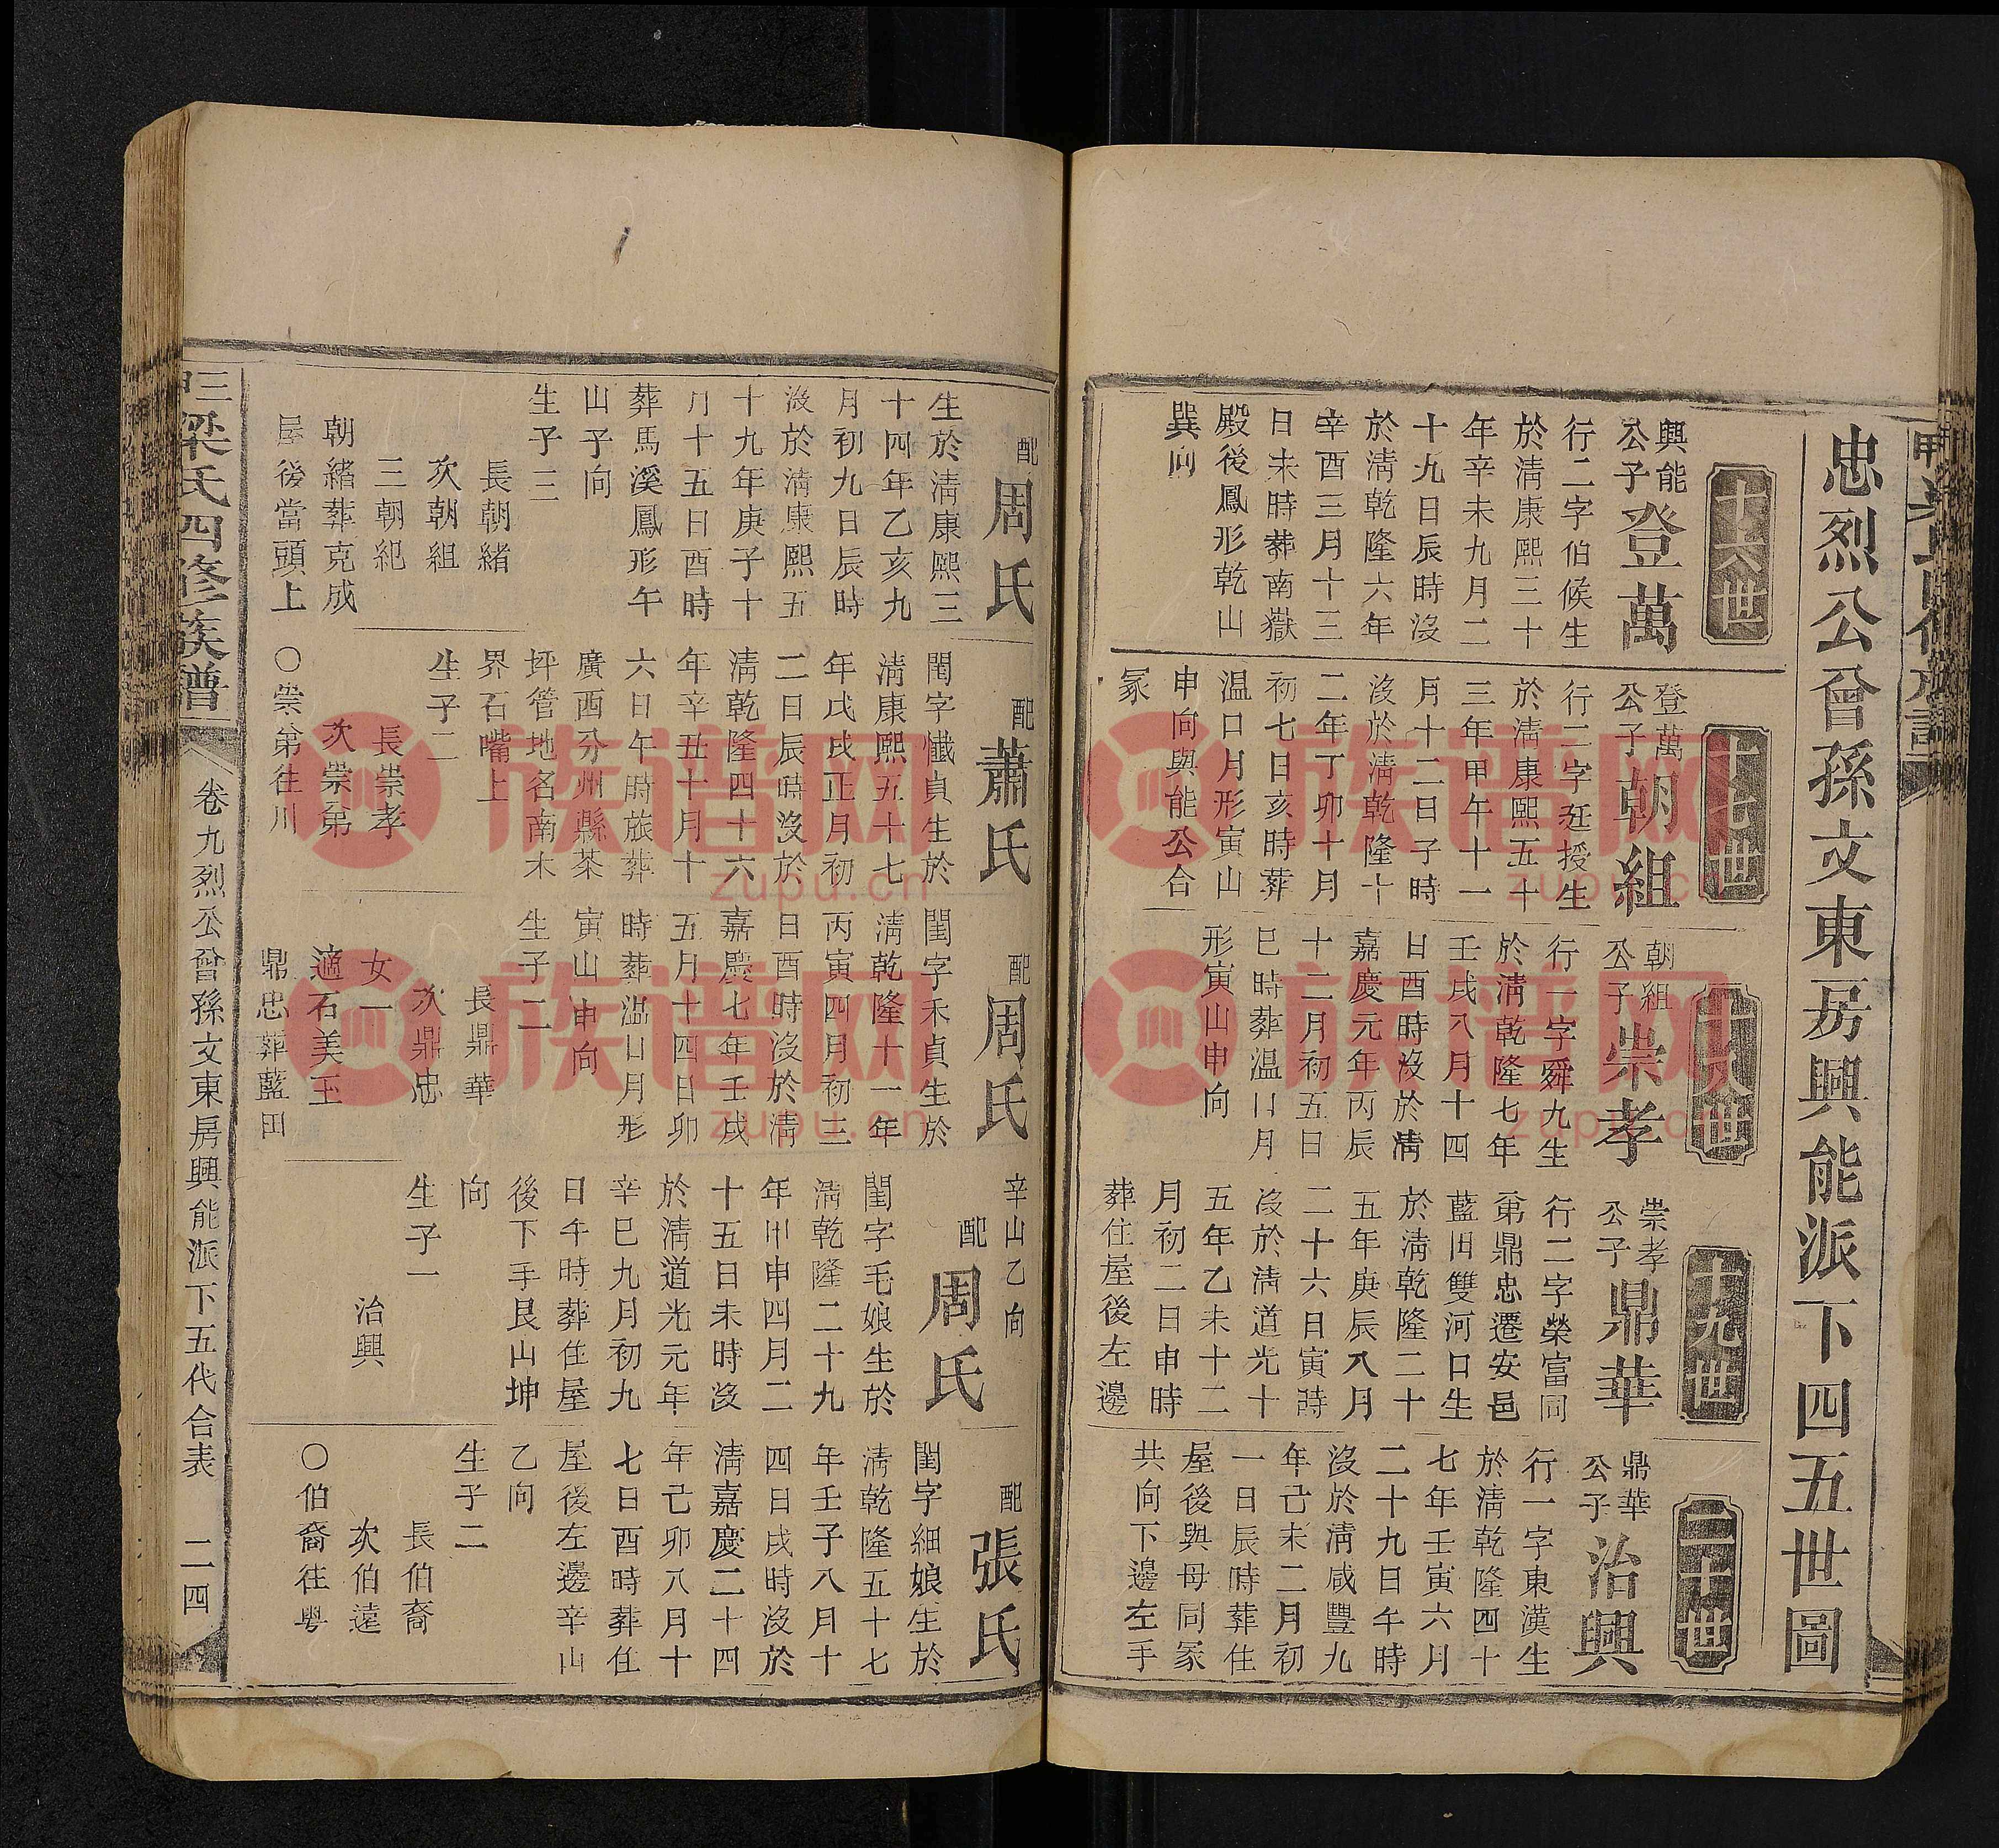 忠烈公曾孫文東房興能派下四五世圖
十六世
興能
公子
登萬
行二字伯候生
於淸康熙三十
年辛未九月二
十九日辰時沒
於淸乾隆六年
辛酉三月十三
日未時葬南嶽
殿後鳳形乾山
巽向
十七世
登萬
公子
朝組
行二字廷授生
於淸康熙五十
三年甲午十一
月十二日子時
沒於淸乾隆十
二年丁卯十月
初七日亥時葬
温口月形寅山
申向與能公合
冢
十八世
朝組
公子
崇孝
行一字舜九生
於淸乾隆七年
壬戌八月十四
日酉時沒於淸
嘉慶元年丙辰
十二月初五日
巳時葬温口月
形寅山申向
十九世
崇孝
公子
鼎華
行二字榮富同
弟鼎忠遷安邑
藍田雙河口生
於淸乾隆二十
五年庚辰八月
二十六日寅時
沒於淸道光十
五年乙未十二
月初二日申時
葬住屋後左邊
二十世
鼎華
公子
治興
行一字東漢生
於淸乾隆四十
七年壬寅六月
二十九日午時
沒於淸咸豐九
年己未二月初
一日辰時葬住
屋後與母同冢
共向下邊左手
配
周氏
生於淸康熙三
十四年乙亥九
月初九日辰時
沒於淸康熙五
十九年庚子十
月十五日酉時
葬馬溪鳳形午
山子向
生子三
長朝緒
次朝組
三朝紀
朝緒葬克成
屋後當頭上
配
蕭氏
閨字懺貞生於
淸康熙五十七
年戊戌正月初
二日辰時沒於
淸乾隆四十六
年辛丑十月十
六日午時旅葬
廣西分州縣茶
坪管地名南木
界石嘴上
生子二
長崇孝
次崇弟
〇崇弟往川
配
周氏
閨字禾貞生於
淸乾隆十一年
丙寅四月初三
日酉時沒於淸
嘉慶七年壬戌
五月十四日卯
時葬温口月形
寅山申向
生子二
長鼎華
次鼎忠
女一
適石美玉
鼎忠葬藍田
辛山乙向
配
周氏
閨字毛娘生於
淸乾隆二十九
年甲申四月二
十五日未時沒
於淸道光元年
辛巳九月初九
日午時葬住屋
後下手艮山坤
向
生子一
治興
配
張氏
閨字細娘生於
淸乾隆五十七
年壬子八月十
四日戌時沒於
淸嘉慶二十四
年己卯八月十
七日酉時葬住
屋後左邊辛山
乙向
生子二
長伯裔
次伯遠
〇伯裔往粵
三甲梁氏四修族譜
卷九烈公曾孫文東房興能派下五代合表
二四
族谱网
zupu.cn
族谱网
zupu.cn
族谱网
zupu.cn
族谱网
zupu.cn